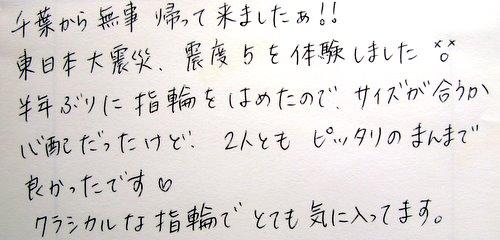 千葉から無事帰って来ましたぁ!!
東日本大震災、震度5を体験しました ××o
半年ぶりに指輪をはめたので、サイズが合うか
心配だったけど、2人とも ピッタリのまんまで
良かったです♡
クラシカルな指輪で とても気に入ってます。